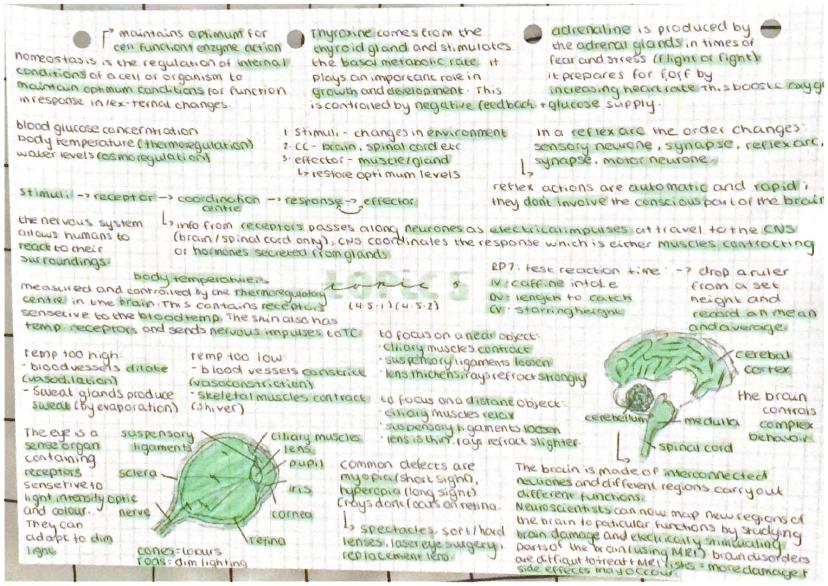 maintains optimum for
cell function + enzyme action
homeostasis is the regulation of internal
conditions of a cell or organism to
maintain optimum conditions for function
in response in/ex-ternal changes.
Thyroxine comes from the
thyroid gland and stimulates
the basal metabolic rate. it
plays an important role in
growth and development. This
is controlled by negative feedback
adrenaline is produced by
the adrenal glands in times of
fear and stress (flight or fight)
it prepares for f.orf by
increasing heart rate this boosts oxyg
+ glucose supply.
blood glucose concerntration
body temperature (thermoregulation)
water levels (osmoregulation)
1. Stimuli - changes in environment
2. CC - brain, spinal cord etc
3. effector - muscle/gland
↳ restore optimum levels
in a reflex arc the order changes:
sensory neurone, synapse, reflex arc,
synapse, motor neurone.
reflex actions are automatic and rapid;
they dont involve the conscious part of the brain
stimuli → receptor → coordination → response → effector
centre
the nervous system
allows humans to
react to their
surroundings.
↳ info from receptors passes along neurones as electrical impulses at travel to the CNS
(brain/spinal cord only), CNS coordinates the response which is either muscles contracting
or hormones secreted from glands
body temperature is
measured and controlled by the thermoregulatory
centre in the brain. This contains receptors
sensetive to the blood temp. The skin also has
temp receptors and sends nervous impulses to TC.
topic 5
(4.5.1)(4.5.2)
RP7: test reaction time: → drop a ruler
from a set
height and
record an mean
and average.
IV: caffine intake
DV: length to catch
CV: starring height
temp too high
- blood vessels dilate
(vasodilation)
- Sweat glands produce
sweat (by evaporation)
temp too low
- blood vessels constrict
(vasoconstriction)
- skeletal muscles contract
(shiver)
to focus on a near object:
· ciliary muscles contract
· suspensory ligaments loosen
· lens thickens, rays refract strongly
to focus on a distant object:
· ciliary muscles relax
· suspensory ligaments loosen
· lens is thin, rays refract slighter.
cerebral
cortex
cerebellum
medulla
spinal cord
the brain
controls
complex
behavoir
The eye is a
sense organ
containing
receptors
sensetive to
light intensity
and colour.
They can
adapt to dim
light
suspensory
ligaments
sclera
optic
nerve
ciliary muscles
lens
pupil
iris
cornea
retina
cones = colours
rods = dim lighting
common defects are
myopia (short sight),
hyperopia (long sight)
(rays dont focus on retina.
↳ spectacles, soft/hard
lenses, laser eye surgery,
replacement lens
The brain is made of interconnected
neurones and different regions carry out
different functions.
Neuroscientists can now map new regions of
the brain to paticular functions by studying
brain damage and electrically stimulating
parts of the brain (using MRI) brain disorders
are difficult to treat + MRI risks = more damage +
side effects may occour